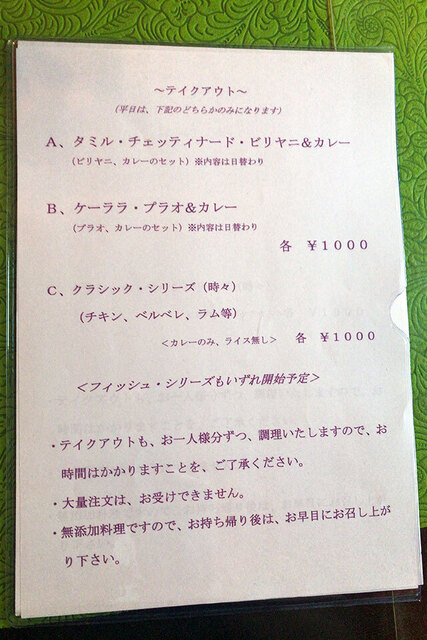 ～テイクアウト～
(平日は、下記のどちらかのみになります)
A、タミル・チェッティナード・ビリヤニ&カレー
(ビリヤニ、カレーのセット) ※内容は日替わり
B、ケーララ・プラオ&カレー
(プラオ、カレーのセット) ※内容は日替わり
各 ￥1000
C、クラシック・シリーズ (時々)
(チキン、ベルペレ、ラム等)
<カレーのみ、ライス無し> 各 ￥1000
<フィッシュ・シリーズもいずれ開始予定>
・テイクアウトも、お一人様分ずつ、調理いたしますので、お
時間はかかりますことを、ご了承ください。
・大量注文は、お受けできません。
・無添加料理ですので、お持ち帰り後は、お早目にお召し上が
り下さい。